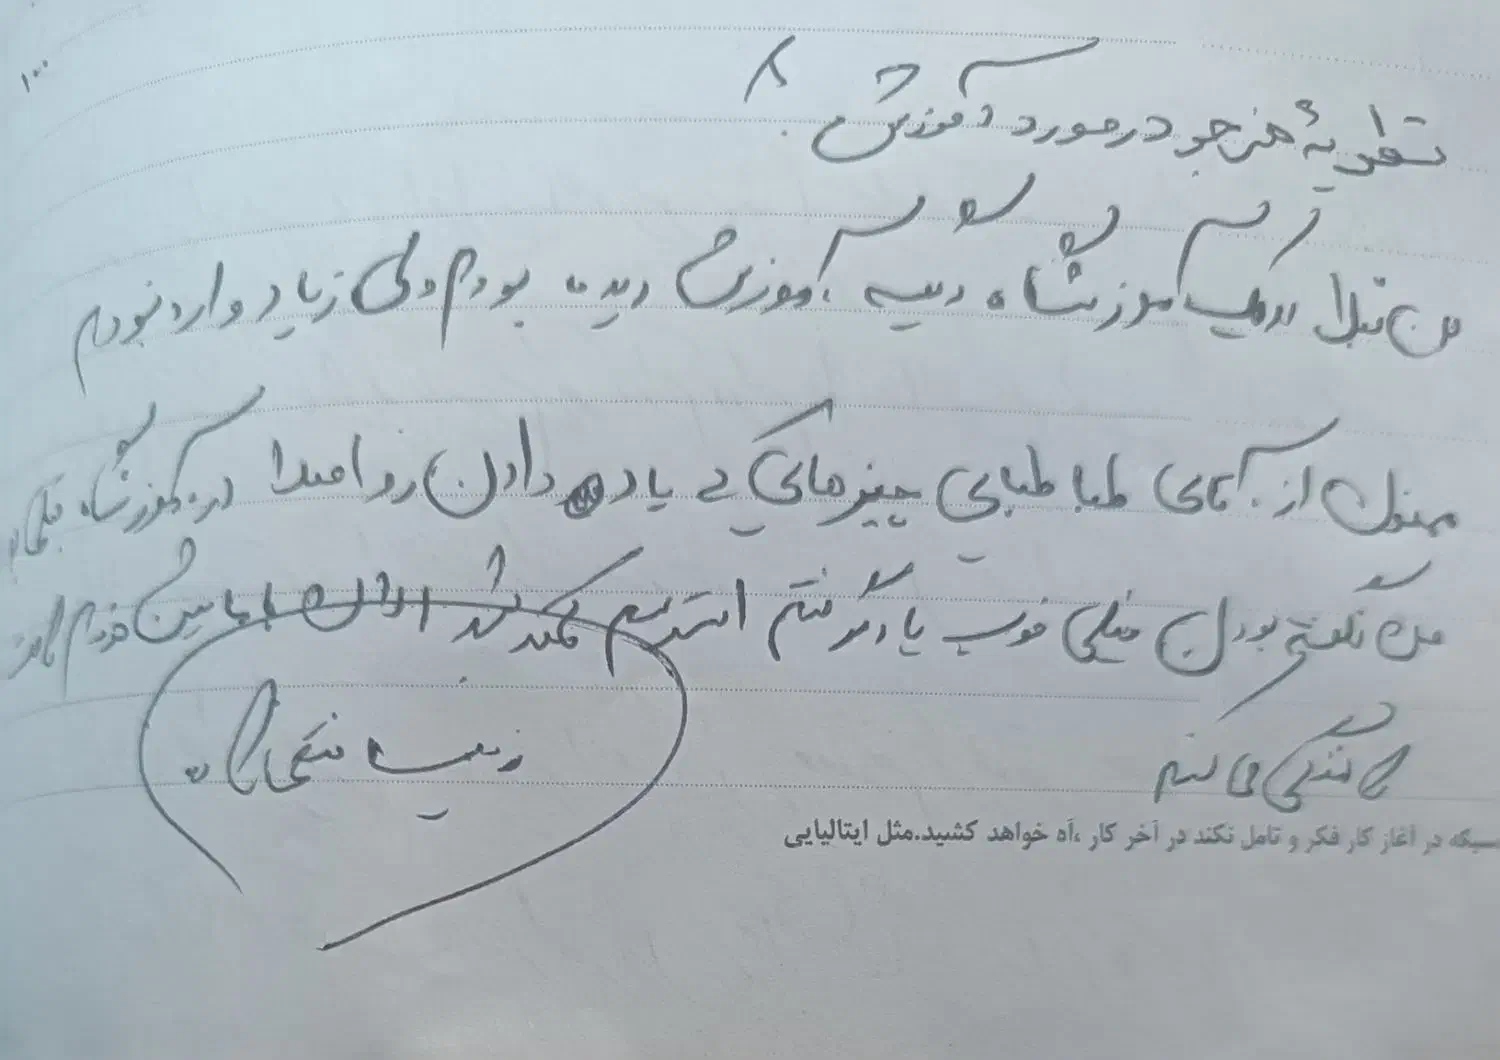 ۱۰۰
نظریهٔ هنرجو در مورد آموزش؟
من قبلا در یک آموزشگاه دیگه آموزش دیده بودم ولی زیاد وارد نبودم
ممنون از آقای طباطبایی چیزهایی که یاد دادن رو اصلا در آموزشگاه قبلی به
من نگفته بودن خیلی خوب یاد گرفتم استرسم کمتر شد الان با ماشین خودم
رانندگی می کنم
زینب
سیکه در آغاز کار فکر و تامل نکند در آخر کار ،آه خواهد کشید.مثل ایتالیایی